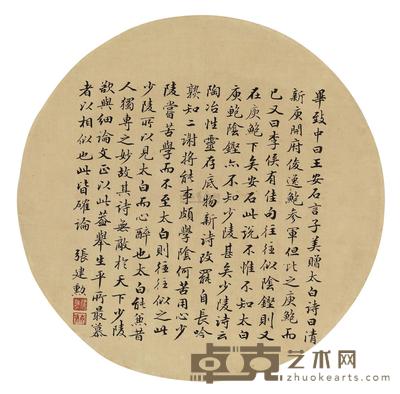 畢致中曰王安石言子美贈太白詩曰清
新庾開府俊逸鮑參軍但比之庾鮑而
已又曰李侯有佳句往往似陰鏗則又
在庾鮑下矣安石此説不惟不知太白
庾鮑陰鏗亦不知少陵甚矣少陵詩云
陶冶性靈存底物新詩改罷自長吟
孰知二謝將能事頗學陰何苦用心少
陵嘗苦學而不至太白則往往似之此
少陵所以見太白而心醉也太白能兼昔
人獨專之妙故其詩無敵於天下少陵
欲與細論文正以此蓋舉生平所最慕
者以相似也此皆確論 張建勲
卓克艺术网
zhuokearts.com